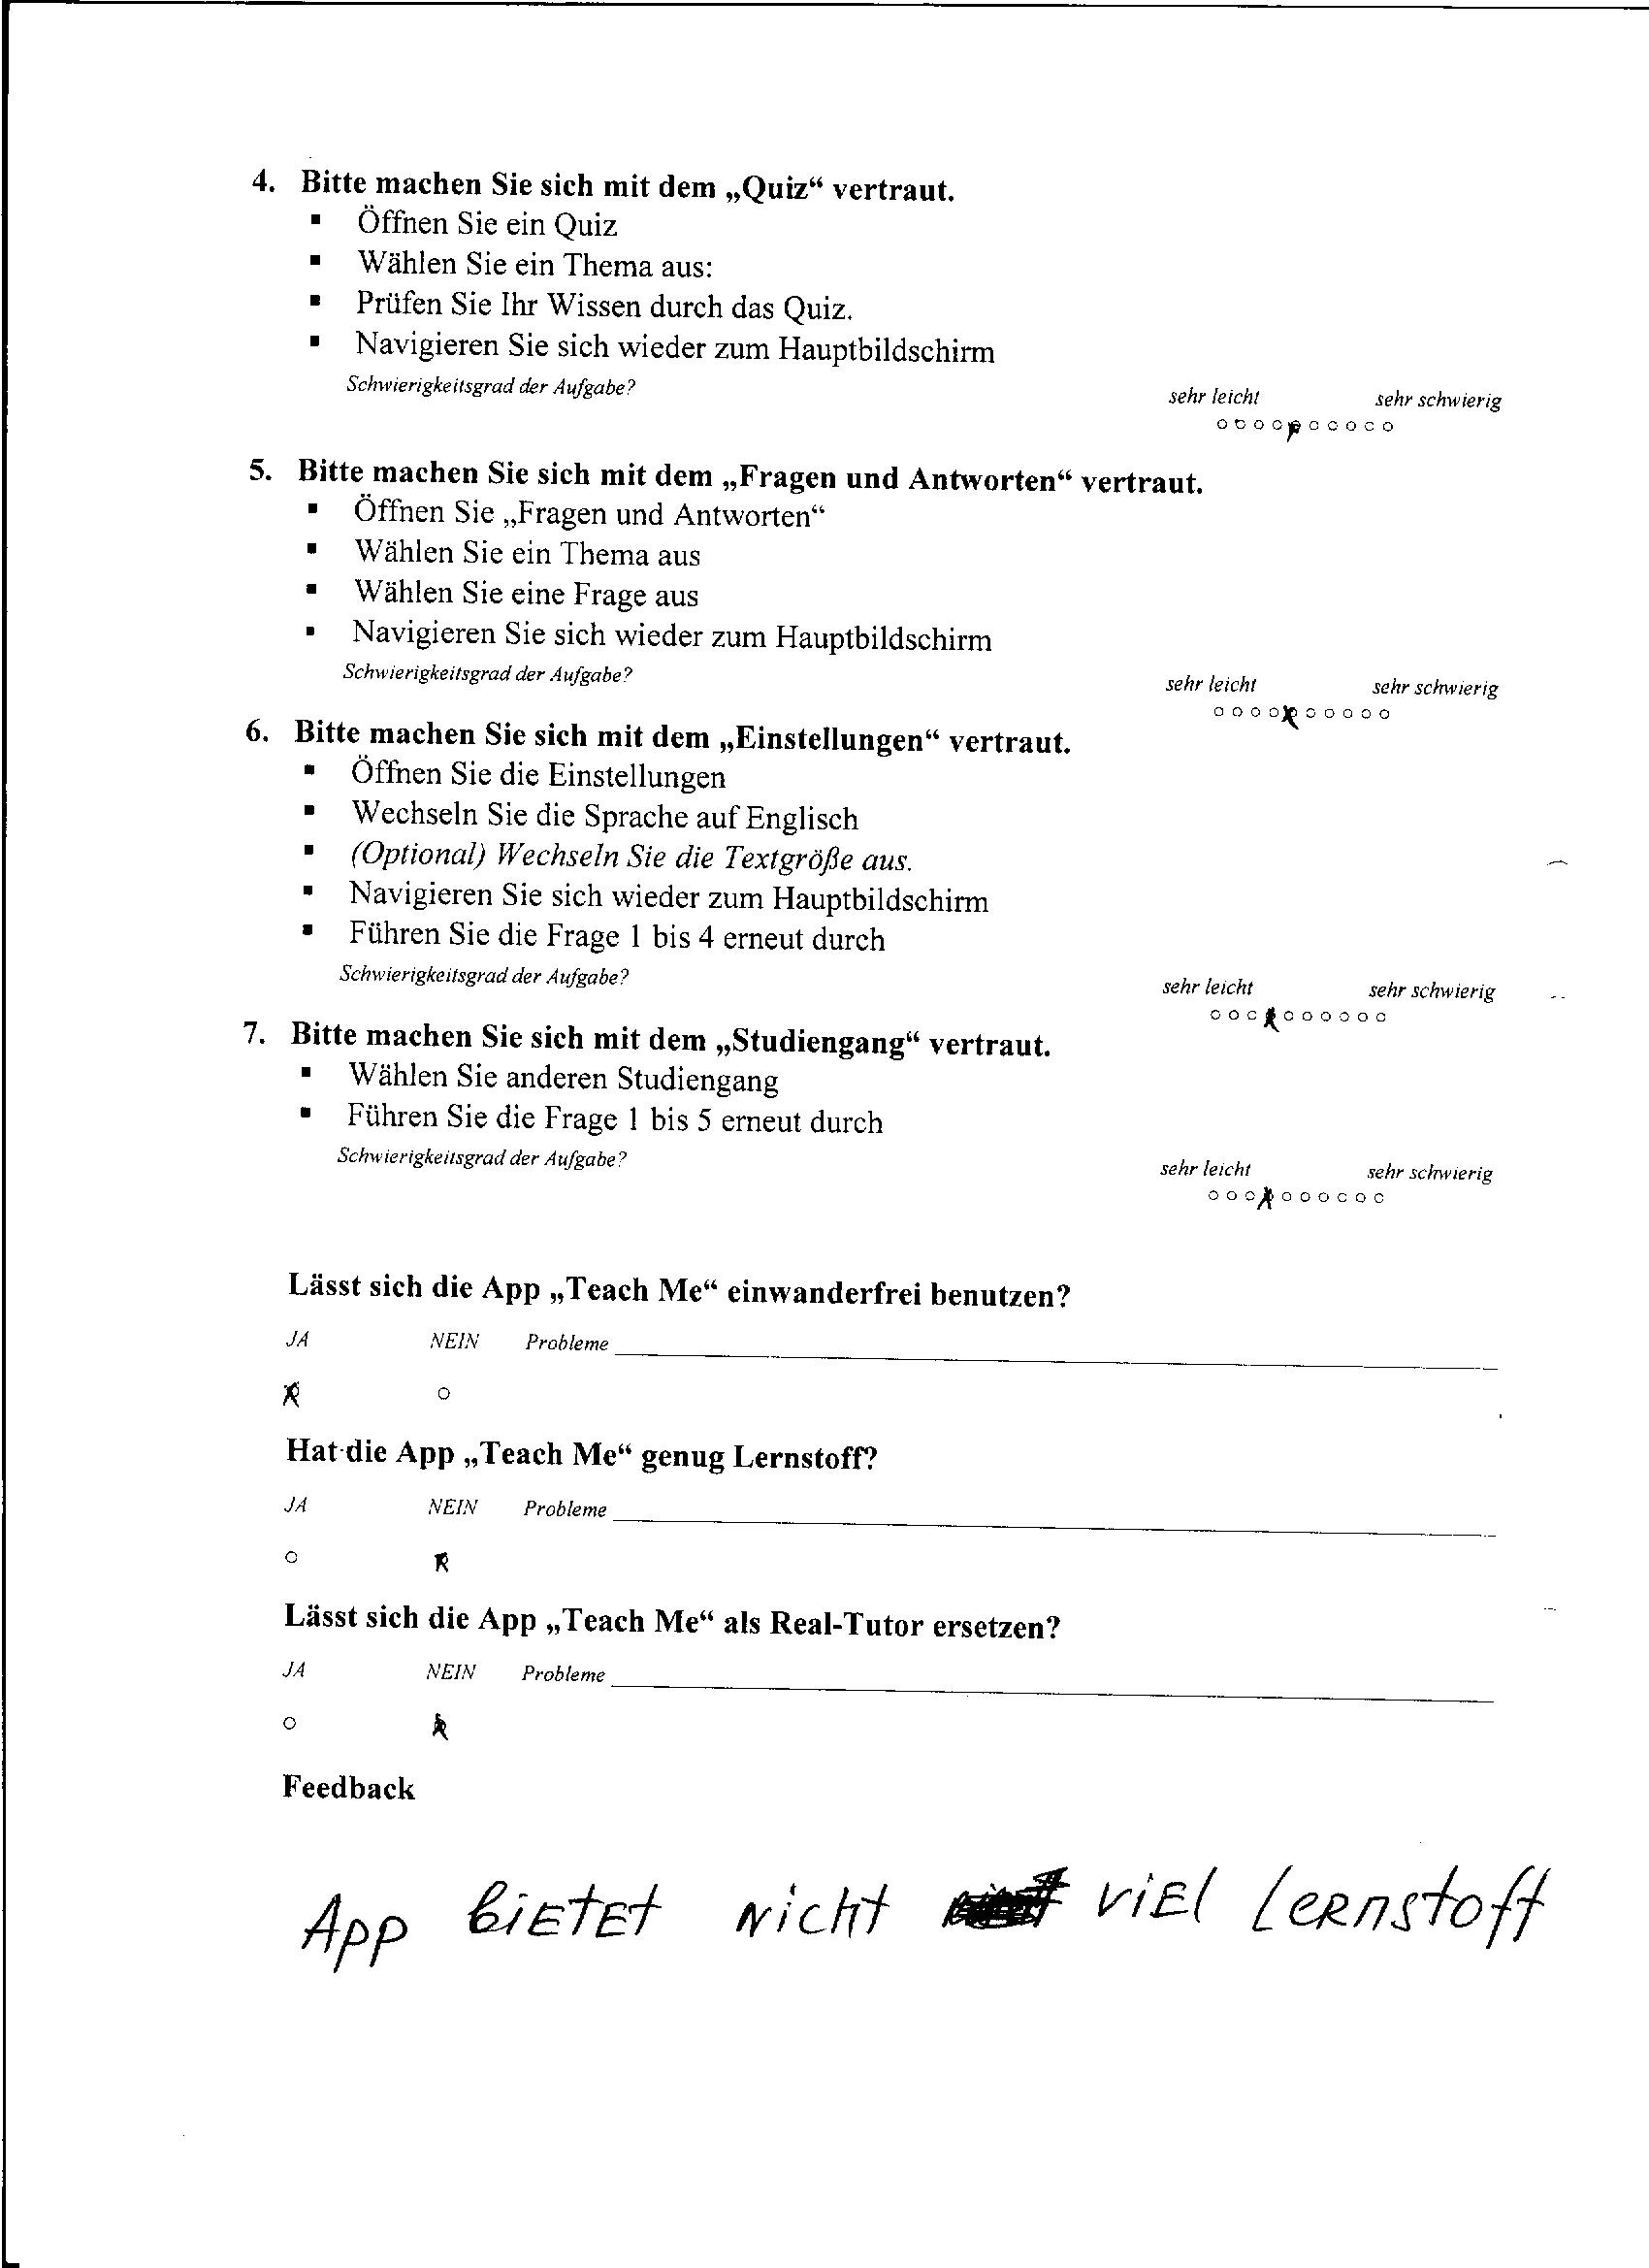 4. Bitte machen Sie sich mit dem „Quiz“ vertraut.
▪ Öffnen Sie ein Quiz
▪ Wählen Sie ein Thema aus:
▪ Prüfen Sie Ihr Wissen durch das Quiz.
▪ Navigieren Sie sich wieder zum Hauptbildschirm
Schwierigkeitsgrad der Aufgabe?
sehr leicht sehr schwierig
5. Bitte machen Sie sich mit dem „Fragen und Antworten“ vertraut.
▪ Öffnen Sie „Fragen und Antworten“
▪ Wählen Sie ein Thema aus
▪ Wählen Sie eine Frage aus
▪ Navigieren Sie sich wieder zum Hauptbildschirm
Schwierigkeitsgrad der Aufgabe?
sehr leicht sehr schwierig
6. Bitte machen Sie sich mit dem „Einstellungen“ vertraut.
▪ Öffnen Sie die Einstellungen
▪ Wechseln Sie die Sprache auf Englisch
▪ (Optional) Wechseln Sie die Textgröße aus.
▪ Navigieren Sie sich wieder zum Hauptbildschirm
▪ Führen Sie die Frage 1 bis 4 erneut durch
Schwierigkeitsgrad der Aufgabe?
sehr leicht sehr schwierig
7. Bitte machen Sie sich mit dem „Studiengang“ vertraut.
▪ Wählen Sie anderen Studiengang
▪ Führen Sie die Frage 1 bis 5 erneut durch
Schwierigkeitsgrad der Aufgabe?
sehr leicht sehr schwierig
Lässt sich die App „Teach Me“ einwanderfrei benutzen?
JA NEIN Probleme
Hat die App „Teach Me“ genug Lernstoff?
JA NEIN Probleme
Lässt sich die App „Teach Me“ als Real-Tutor ersetzen?
JA NEIN Probleme
Feedback
App bietet nicht viel Lernstoff